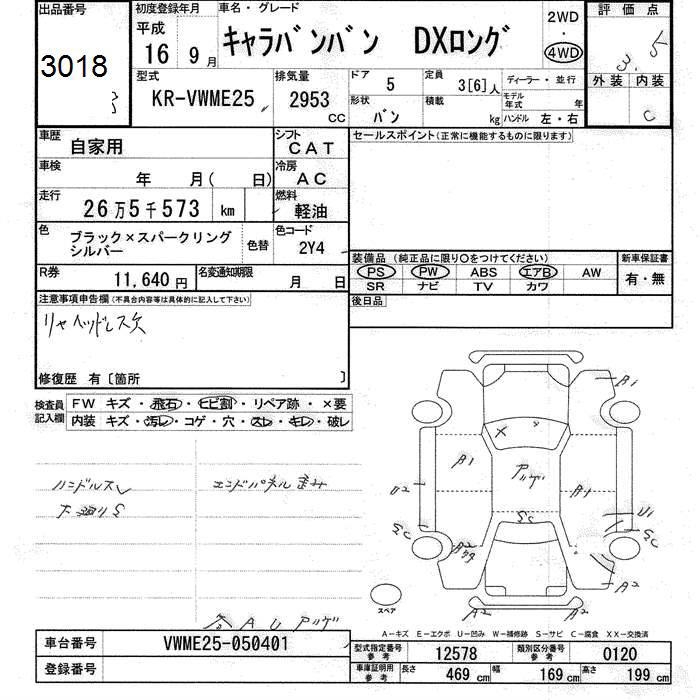 出品番号
3018
初度登録年月
平成
16年9月
車名・グレード
キャラバンバン DXロング
2WD
・
4WD
評価点
3.5
外装 内装
C
型式
KR-VWME25
排気量
2953
CC
ドア
5
定員
3[6]人
ディーラー・並行
形状
バン
積載
kg
モデル年式 年
ハンドル 左・右
車歴
自家用
シフト
CAT
セールスポイント(正常に機能するものに限ります)
車検
年 月( 日)
冷房
AC
走行
26万5千573 km
燃料
軽油
色
ブラック×スパークリング
シルバー
色替
色コード
2Y4
装備品 (純正品に限り○をつけてください)
PS PW ABS エアB AW
SR ナビ TV カワ
新車保証書
有・無
R券
11,640円
名変通知期限
月 日
後日品
注意事項申告欄(不具合内容等は具体的に記入して下さい)
リヤヘッドレス欠
修復歴 有〔箇所 〕
検査員
記入欄
FW キズ・飛石・ヒビ割・リペア跡・×要
内装 キズ・汚レ・コゲ・穴・スレ・キレ・破レ
ハンドルスレ
下廻りS
エンドパネル歪み
各AUアリゲ
B1
X
B1
アリゲ
B1
U2
U1
SC
SC
SC
A2
A2
A2
スペア
A-キズ E-エクボ U-凹み W-補修跡 S-サビ C-腐食 XX-交換済
車台番号
VWME25-050401
登録番号
型式指定番号
参考
12578
類別区分番号
参考
0120
車庫証明用
参考
長さ 469 cm
幅 169 cm
高さ 199 cm